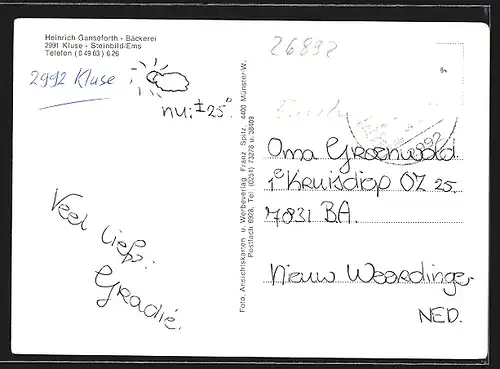 Heinrich Ganseforth - Bäckerei
2991 Kluse - Steinbild/Ems
Telefon (0 49 63) 6 26
2992 Kluse
26892
nu: ± 25°
Veel liefs.
Gradie.
Foto, Ansichtskarten u. Werbeverlag Franz Spitz, 4400 Münster W.
Postfach 6928, Tel. (0251) 73278 u. 38409
Oma Groenwold
1e Kruisdiep OZ 25.
7831 BA.
Nieuw Weerdinge
NED.